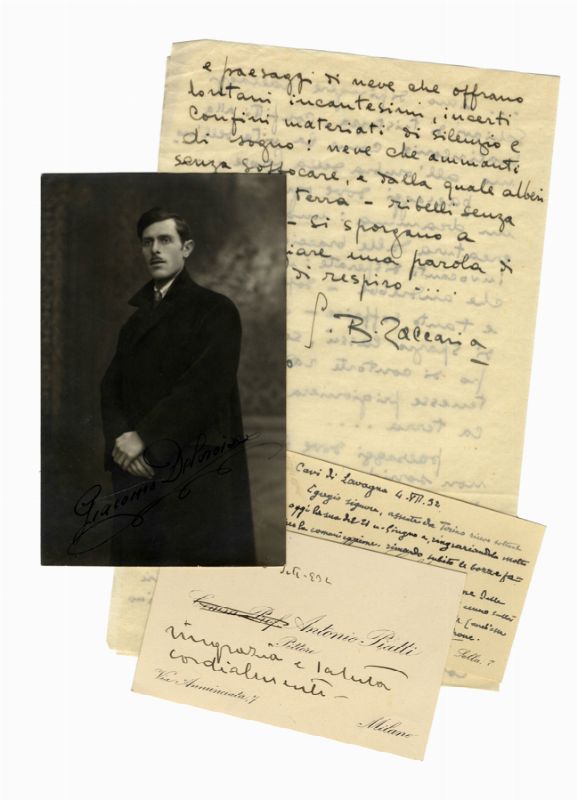 e paesaggi di neve che offrano
lontani incantesimi, incerti
confini materiati di silenzio e
di sogno! neve che ammanti
senza soffocare, e dalla quale alberi
terra - ribelli senza
- si sporgano a
iare una parola di
di respiro ....
G. B. Zaccaria
Giacomo
Cavi di Lavagna 4. VII. 32
Egregio signore, da Torino ricevo soltanto
oggi la sua del 27 u. Giugno e, ringraziandola molto
la comunicazione, rimando subito le bozze
Antonio Piatti
Pittore
ringrazia e saluta
cordialmente -
Via Annunciata, 7
Milano